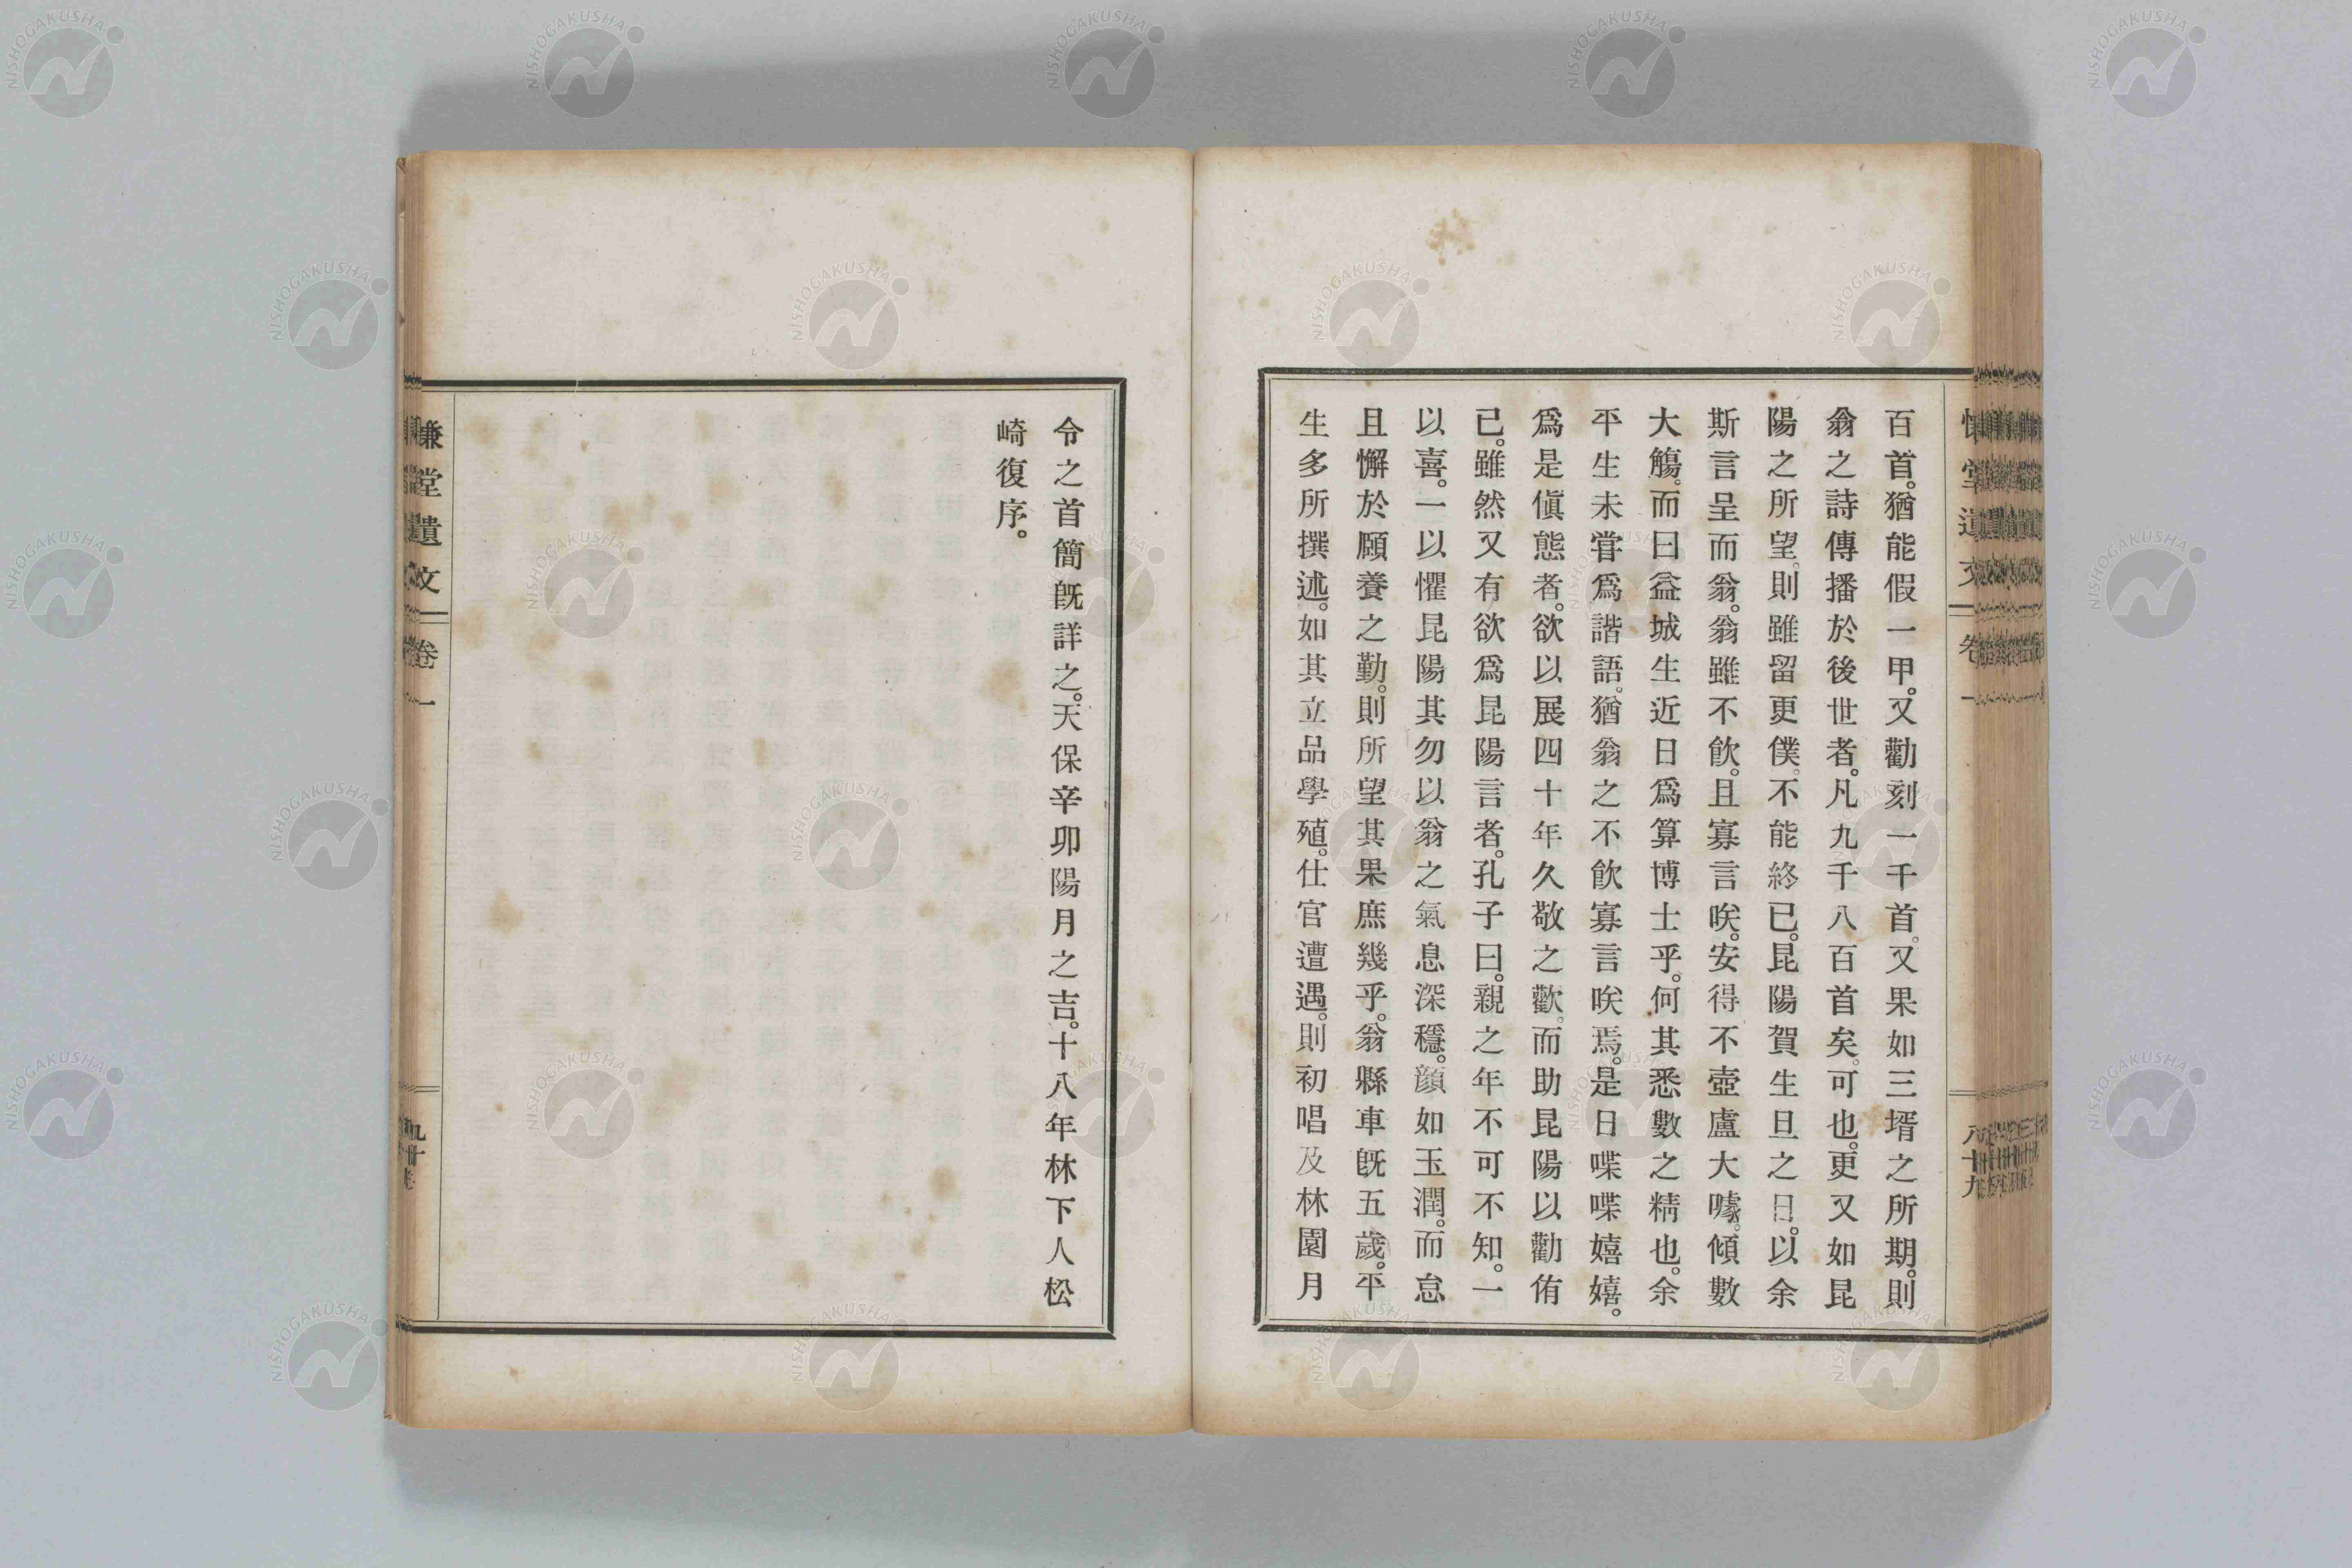 百首。猶能假一甲。又勸刻一千首。又果如三壻之所期。則
翁之詩傳播於後世者。凡九千八百首矣。可也。更又如昆
陽之所望。則雖留更僕。不能終已。昆陽賀生旦之日。以余
斯言呈而翁。翁雖不飮。且寡言咲。安得不壺盧大噱。傾數
大觴。而曰益城生近日爲算博士乎。何其悉數之精也。余
平生未甞爲諧語。猶翁之不飮寡言咲焉。是日喋喋嬉嬉。
爲是傎態者。欲以展四十年久敬之歡。而助昆陽以勸侑
已。雖然又有欲爲昆陽言者。孔子曰。親之年不可不知。一
以喜。一以懼昆陽其勿以翁之氣息深穩。顏如玉潤。而怠
且懈於願養之勤。則所望其果庶幾乎。翁縣車旣五歲。平
生多所撰述。如其立品學殖。仕官遭遇。則初唱及林園月
令之首簡旣詳之。天保辛卯陽月之吉。十八年林下人松
崎復序。
慊堂遺文 卷一